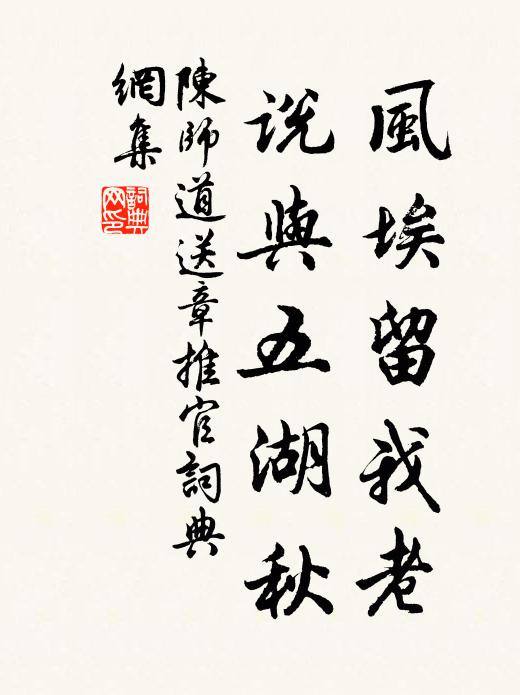 風埃留我老
說與五湖秋
陳師道送章推官詞典
網集
詞典網印